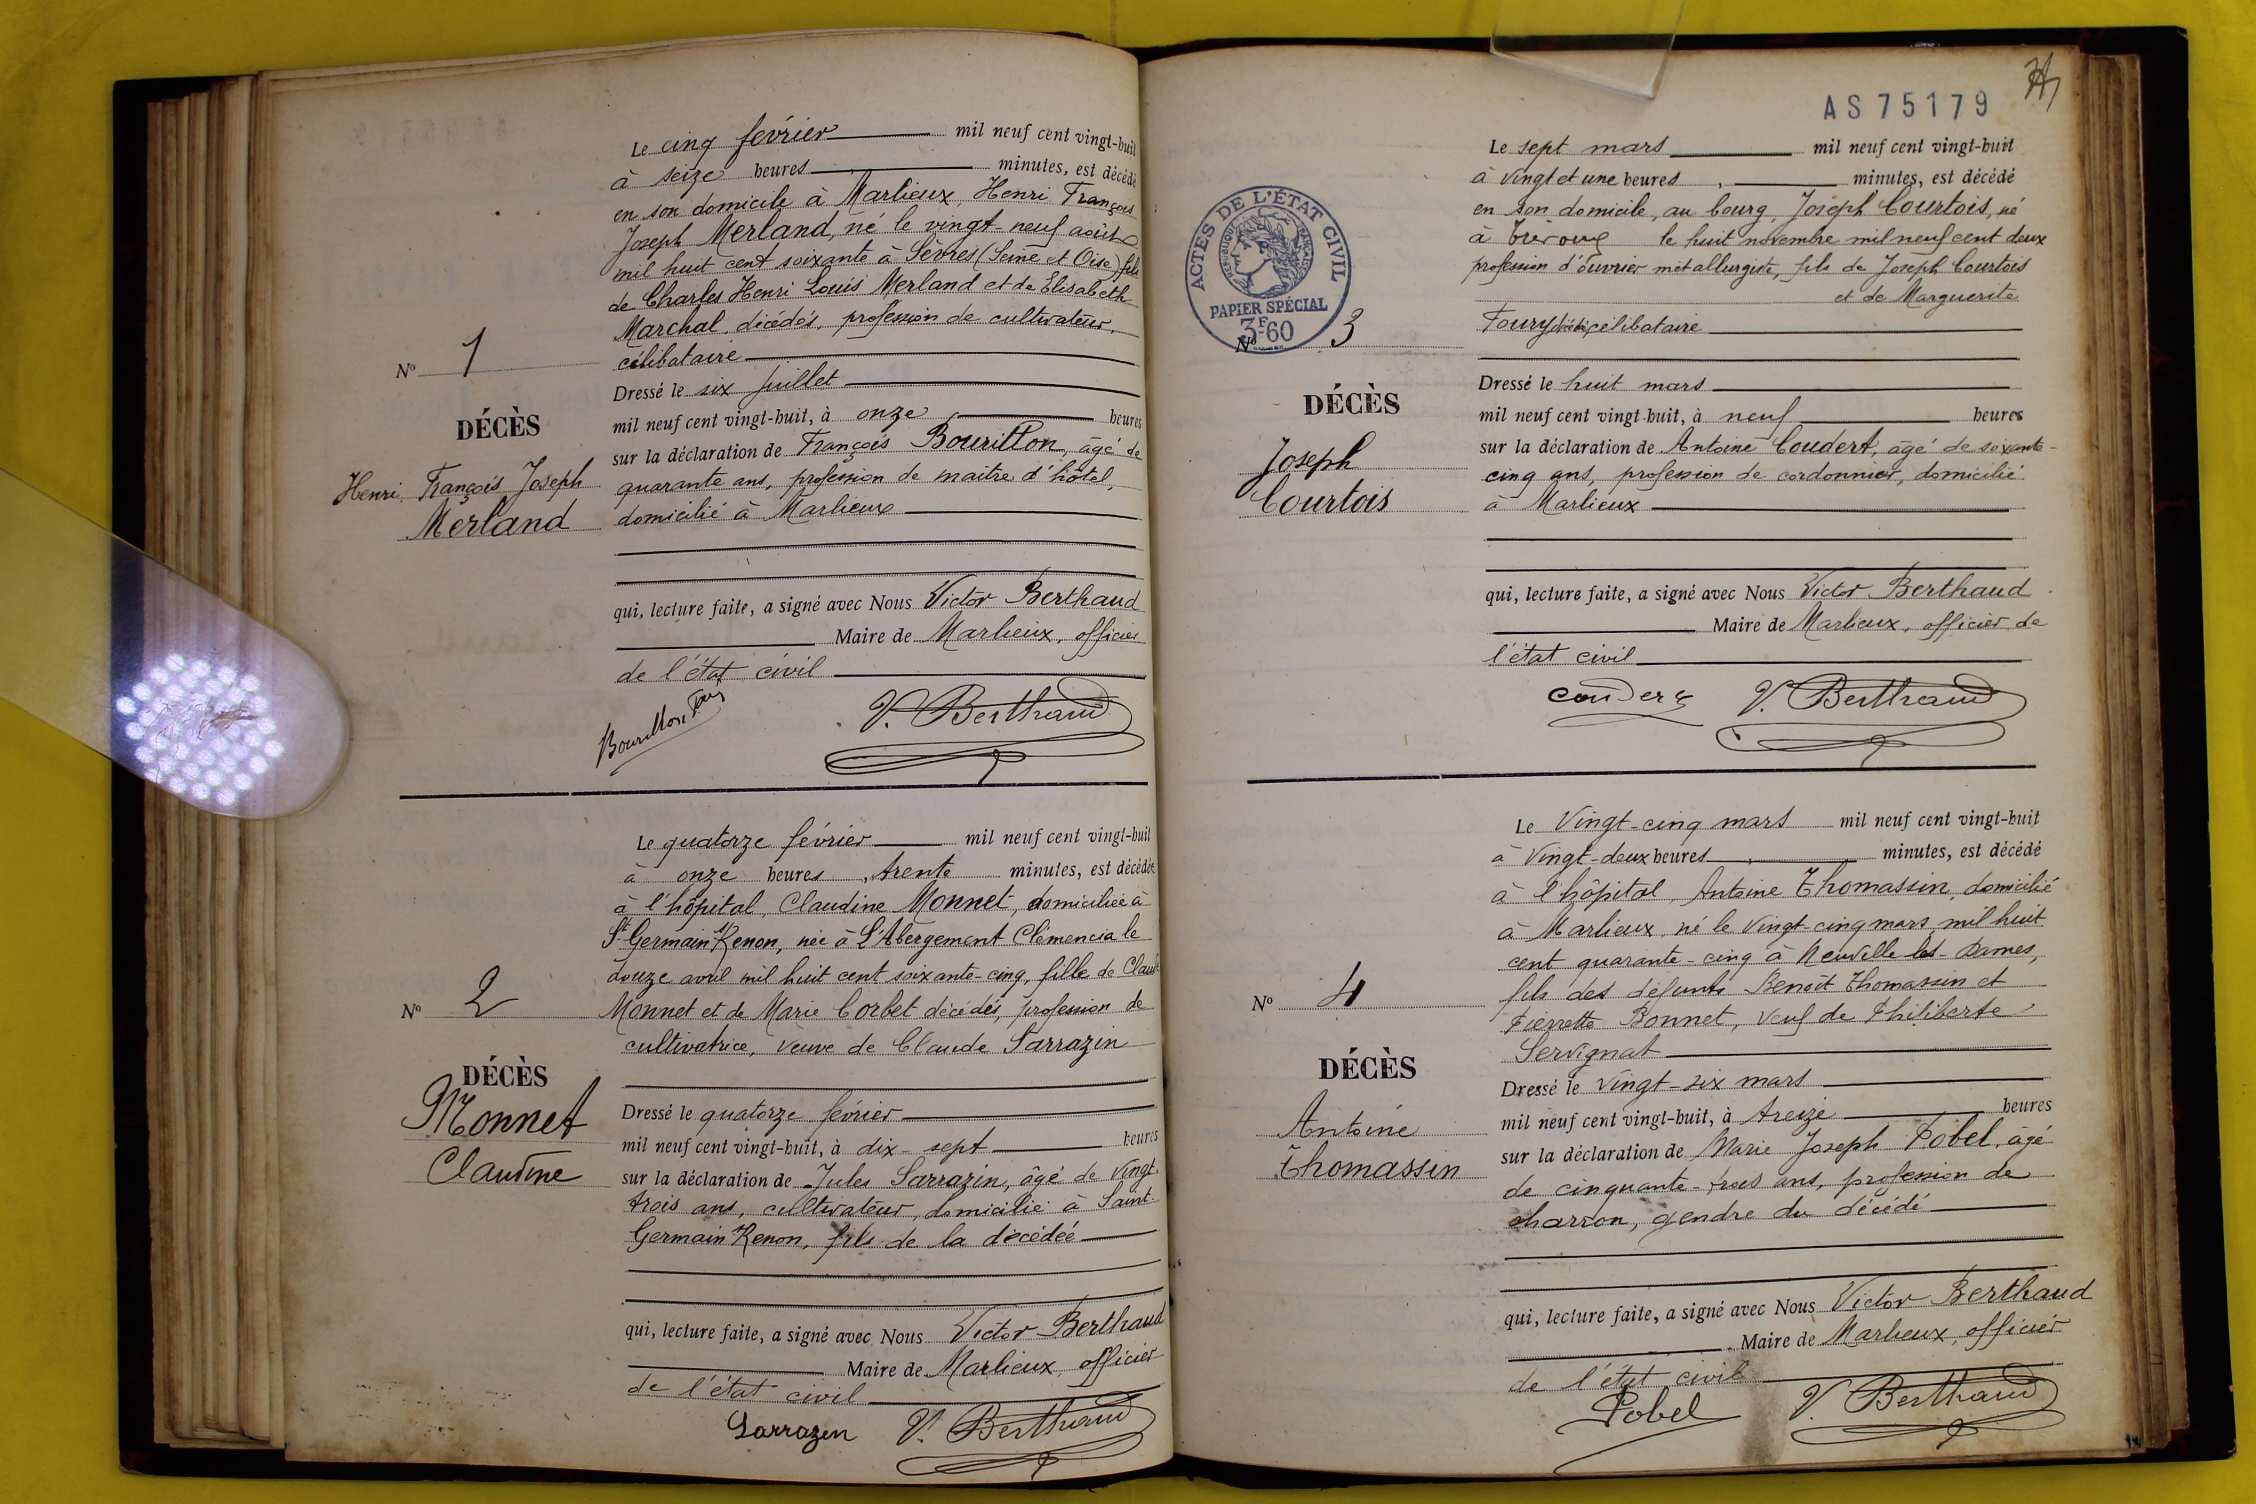 Le cinq février mil neuf cent vingt-huit
à seize heures minutes, est décédé
en son domicile à Marlieux, Henri François
Joseph Merland, né le vingt-neuf août
mil huit cent soixante à Sèvres (Seine et Oise) fils
de Charles Henri Louis Merland et de Elisabeth
Marchal, décédés, profession de cultivateur,
célibataire
Nº 1
DÉCÈS
Henri François Joseph
Merland
Dressé le six juillet
mil neuf cent vingt-huit, à onze heures
sur la déclaration de François Bourillon, âgé de
quarante ans, profession de maître d'hôtel,
domicilié à Marlieux
qui, lecture faite, a signé avec Nous Victor Berthaud
Maire de Marlieux, officier
de l'état civil
Bourillon V. Berthaud
Le quatorze février mil neuf cent vingt-huit
à onze heures, trente minutes, est décédée
à l'hôpital, Claudine Monnet, domiciliée à
St Germain s/ Renon, née à L'Abergement Clémencia le
douze avril mil huit cent soixante-cinq, fille de Claude
Monnet et de Marie Corbet décédés, profession de
cultivatrice, veuve de Claude Sarrazin
Nº 2
DÉCÈS
Monnet
Claudine
Dressé le quatorze février
mil neuf cent vingt-huit, à dix-sept heures
sur la déclaration de Jules Sarrazin, âgé de vingt-
trois ans, cultivateur, domicilié à Saint-
Germain s/ Renon, fils de la décédée
qui, lecture faite, a signé avec Nous Victor Berthaud
Maire de Marlieux, officier
de l'état civil
Sarrazin V. Berthaud
AS 75179
Le sept mars mil neuf cent vingt-huit
à vingt et une heures, minutes, est décédé
en son domicile, au bourg, Joseph Courtois, né
à le huit novembre mil neuf cent deux
profession d'ouvrier métallurgiste, fils de Joseph Courtois
et de Marguerite
Foury célibataire
ACTES DE L'ÉTAT CIVIL
RÉPUBLIQUE FRANÇAISE
PAPIER SPÉCIAL
3F60
Nº 3
DÉCÈS
Joseph
Courtois
Dressé le huit mars
mil neuf cent vingt-huit, à neuf heures
sur la déclaration de Antoine Coudert, âgé de soixante-
cinq ans, profession de cordonnier, domicilié
à Marlieux
qui, lecture faite, a signé avec Nous Victor Berthaud
Maire de Marlieux, officier de
l'état civil
Coudert V. Berthaud
Le vingt-cinq mars mil neuf cent vingt-huit
à vingt-deux heures, minutes, est décédé
à l'hôpital, Antoine Thomassin, domicilié
à Marlieux, né le vingt-cinq mars mil huit
cent quarante-cinq à Neuville les Dames,
fils des défunts Benoît Thomassin et
Pierrette Bonnet, veuf de Philiberte
Servignat
Nº 4
DÉCÈS
Antoine
Thomassin
Dressé le vingt-six mars
mil neuf cent vingt-huit, à treize heures
sur la déclaration de Marie Joseph Pobel, âgé
de cinquante-trois ans, profession de
charron, gendre du décédé
qui, lecture faite, a signé avec Nous Victor Berthaud
Maire de Marlieux, officier
de l'état civil
Pobel V. Berthaud